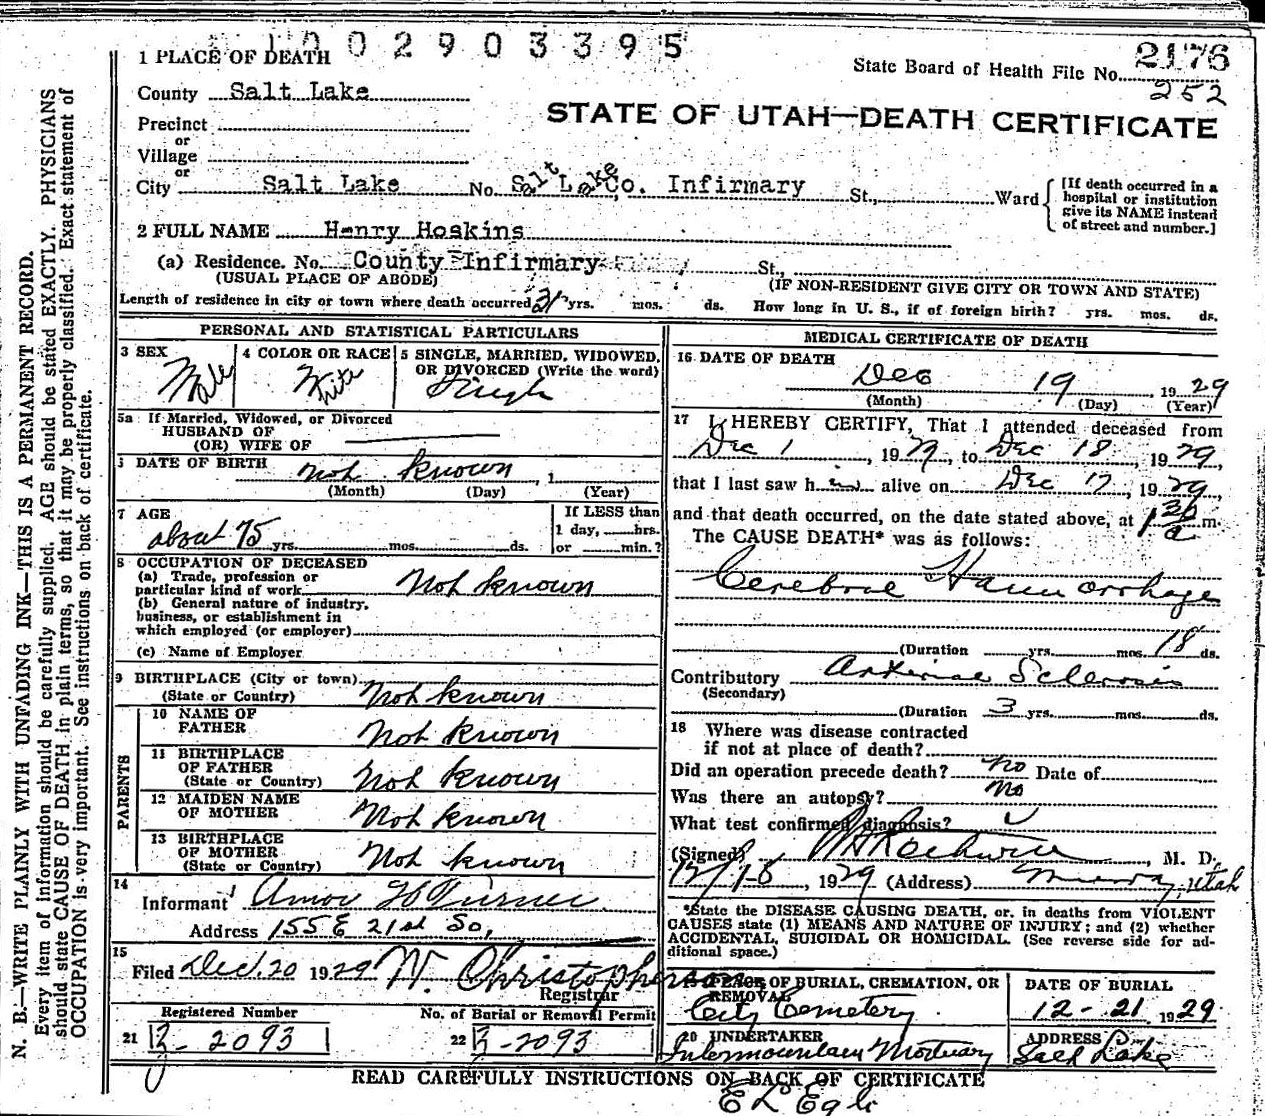 1 0 0 2 9 0 3 3 9 5
1 PLACE OF DEATH
State Board of Health File No. 2176
252
County Salt Lake
STATE OF UTAH—DEATH CERTIFICATE
Precinct
or
Village
or
City Salt Lake No. Salt Lake Co. Infirmary St., Ward
[If death occurred in a
hospital or institution
give its NAME instead
of street and number.]
2 FULL NAME Henry Hoskins
(a) Residence. No. County Infirmary St.,
(USUAL PLACE OF ABODE) (IF NON-RESIDENT GIVE CITY OR TOWN AND STATE)
Length of residence in city or town where death occurred 21 yrs. mos. ds. How long in U. S., if of foreign birth? yrs. mos. ds.
PERSONAL AND STATISTICAL PARTICULARS
3 SEX 4 COLOR OR RACE 5 SINGLE, MARRIED, WIDOWED,
OR DIVORCED (Write the word)
Male White Single
5a If Married, Widowed, or Divorced
HUSBAND OF
(OR) WIFE OF
6 DATE OF BIRTH not known , 1
(Month) (Day) (Year)
7 AGE If LESS than
about 75 yrs. mos. ds. 1 day, hrs.
or min.?
8 OCCUPATION OF DECEASED
(a) Trade, profession or
particular kind of work Not known
(b) General nature of industry,
business, or establishment in
which employed (or employer)
(c) Name of Employer
9 BIRTHPLACE (City or town)
(State or Country) Not known
PARENTS
10 NAME OF
FATHER Not known
11 BIRTHPLACE
OF FATHER
(State or Country) Not known
12 MAIDEN NAME
OF MOTHER Not known
13 BIRTHPLACE
OF MOTHER
(State or Country) Not known
14
Informant Amor H Turner
Address 155 E 21st So,
15
Filed Dec. 20 1929 W. Christopherson
Registrar
Registered Number No. of Burial or Removal Permit
21 B-2093 22 B-2093
MEDICAL CERTIFICATE OF DEATH
16 DATE OF DEATH
Dec 19 1929
(Month) (Day) (Year)
17 I HEREBY CERTIFY, That I attended deceased from
Dec 1, 1929, to Dec 18, 1929,
that I last saw him alive on Dec 17, 1929,
and that death occurred, on the date stated above, at 1 30 a m.
The CAUSE DEATH* was as follows:
Cerebral Haemorrhage
(Duration yrs. mos. 18 ds.
Contributory Arterial Sclerosis
(Secondary)
(Duration 3 yrs. mos. ds.
18 Where was disease contracted
if not at place of death?
Did an operation precede death? no Date of
Was there an autopsy? no
What test confirmed diagnosis?
(Signed) , M. D.
1929 (Address) Murray, Utah
*State the DISEASE CAUSING DEATH, or, in deaths from VIOLENT
CAUSES state (1) MEANS AND NATURE OF INJURY; and (2) whether
ACCIDENTAL, SUICIDAL OR HOMICIDAL. (See reverse side for ad-
ditional space.)
PLACE OF BURIAL, CREMATION, OR
REMOVAL
City Cemetery
DATE OF BURIAL
12-21 1929
20 UNDERTAKER
Intermountain Mortuary
ADDRESS
Salt Lake
READ CAREFULLY INSTRUCTIONS ON BACK OF CERTIFICATE
N. B.—WRITE PLAINLY WITH UNFADING INK—THIS IS A PERMANENT RECORD.
Every item of information should be carefully supplied. AGE should be stated EXACTLY. PHYSICIANS
should state CAUSE OF DEATH in plain terms, so that it may be properly classified. Exact statement of
OCCUPATION is very important. See instructions on back of certificate.